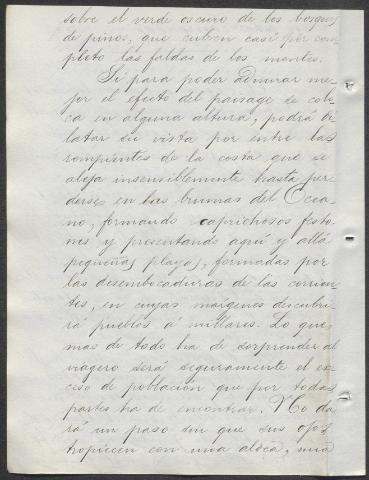 sobre el verde oscuro de los bosques
de pinos, que cubren casi por com
pleto las faldas de los montes.
Si para poder admirar me
jor el efecto del paisage se colo
ca en alguna altura, podrá di
latar su vista por entre las
rompientes de la costa que se
aleja insensiblemente hasta per
derse en las brumas del Océa
no, formando caprichosos festo
nes y presentando aquí y allá
pequeñas playas, formadas por
las desembocaduras de las corrien
tes, en cuyas márgenes descubri
rá pueblos á millares. Lo que
mas de todo ha de sorprender al
viagero será seguramente el ex
ceso de población que por todas
partes ha de encontrar. No da
rá un paso sin que sus ojos
tropiecen con una aldea, una